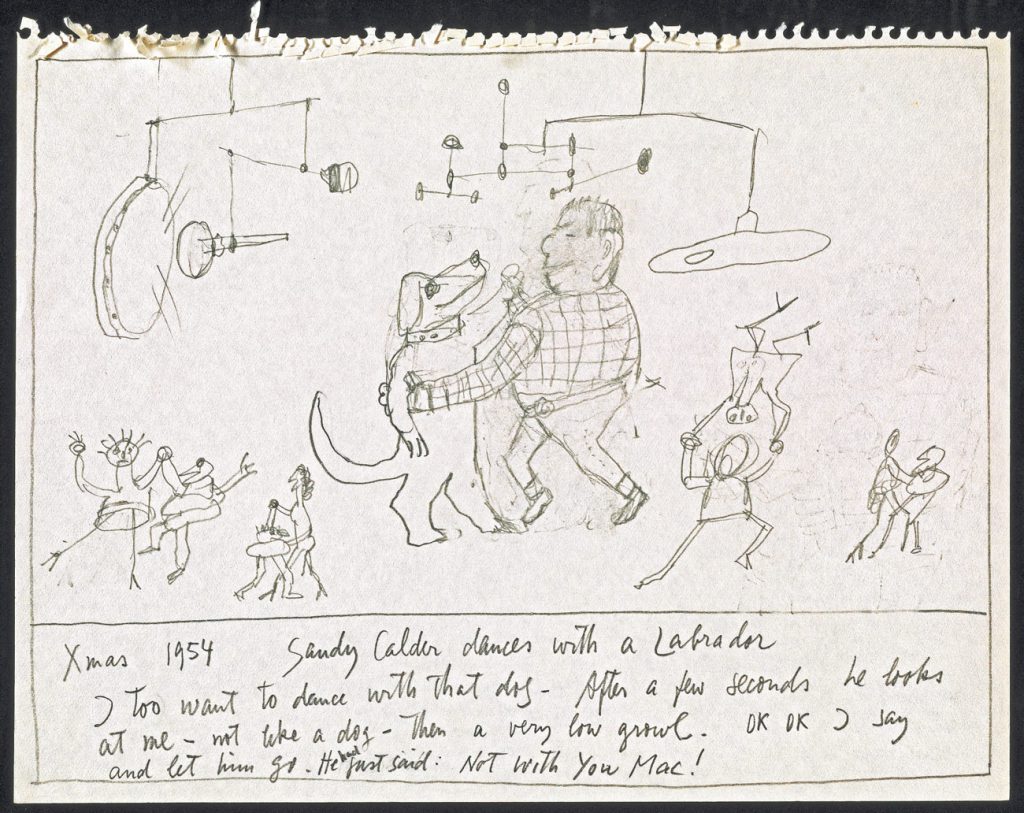 Xmas 1954 Sandy Calder dances with a Labrador
I too want to dance with that dog - After a few seconds he looks
at me - not like a dog - then a very low growl. OK OK I say
and let him go. He had just said: Not with You Mac!